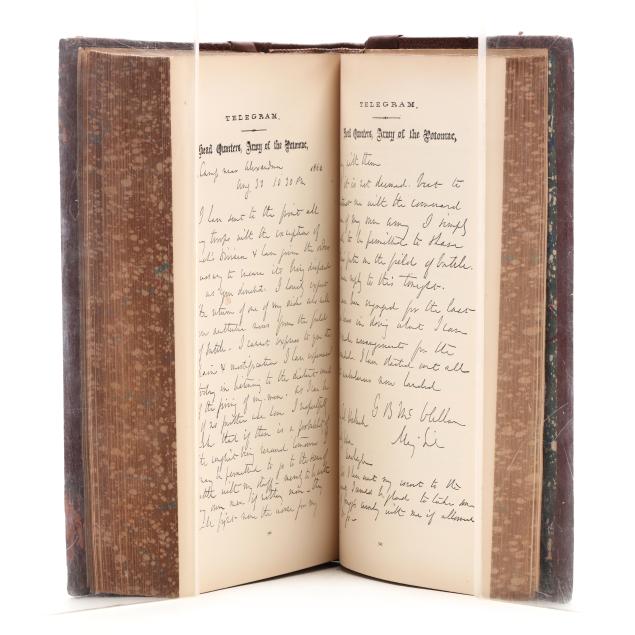 TELEGRAM.
Head Quarters, Army of the Potomac,
Camp near Alexandria 1862
Aug 30 10 30 PM
I have sent to the front all
my troops with the exception of
Division & have given the orders
necessary to insure its being
as you direct. I hourly expect
the return of one of my aides who will
authentic news from the field
of battle. I cannot express to you the
pain & mortification I have experienced
today in listening to the distant sound
of the firing of my men. As I can be
of no further use here I respectfully
ask that if there is a probability of
the conflict being renewed tomorrow I
may be permitted to go to the scene of
battle with my staff - merely to be with
my own men if nothing more - they
will fight none the worse for my
TELEGRAM.
Head Quarters, Army of the Potomac,
with them
it is not deemed best to
me with the command
of my own army I simply
ask to be permitted to share
fate on the field of battle.
reply to this tonight.
have been engaged for the last
hours in doing what I can
arrangements for the
I have started out all
ambulances now landed
G B McClellan
Maj Gen
I have sent my escort to the
I would be glad to take
with me if allowed
go